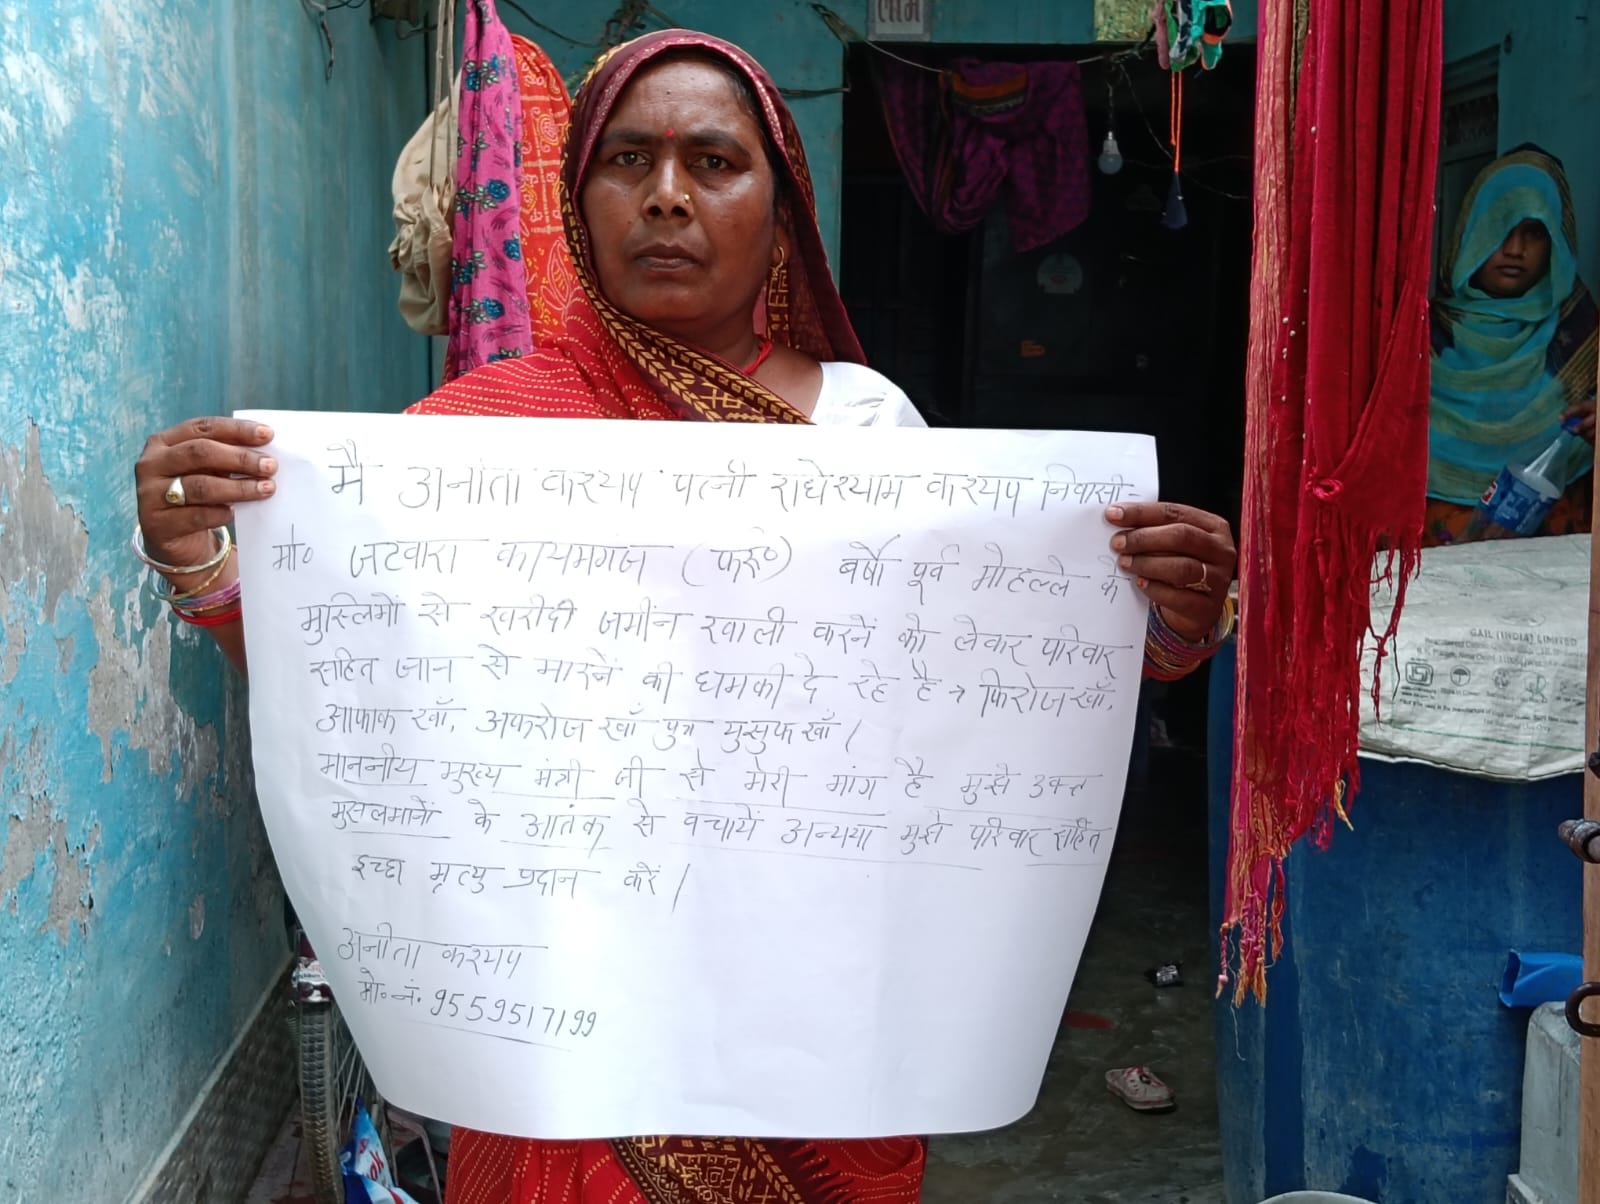 लाभ
मैं अनीता कश्यप पत्नी राधेश्याम कश्यप निवासी-
मो० जटवारा कायमगंज (फर्रु०) वर्षो पूर्व मोहल्ले के
मुस्लिमों से खरीदी जमींन खाली करनें को लेकर परिवार
सहित जान से मारनें की धमकी दे रहे है, फिरोज खाँ,
आफाक खाँ, अफरोज खाँ पुत्र युसुफ खाँ /
माननीय मुख्य मंत्री जी से मेरी मांग है मुझे उक्त
मुसलमानों के आतंक से बचायें अन्यथा मुझे परिवार सहित
इच्छा मृत्यु प्रदान करें /
अनीता कश्यप
मो.नं. 9559517199
GAIL (INDIA) LIMITED